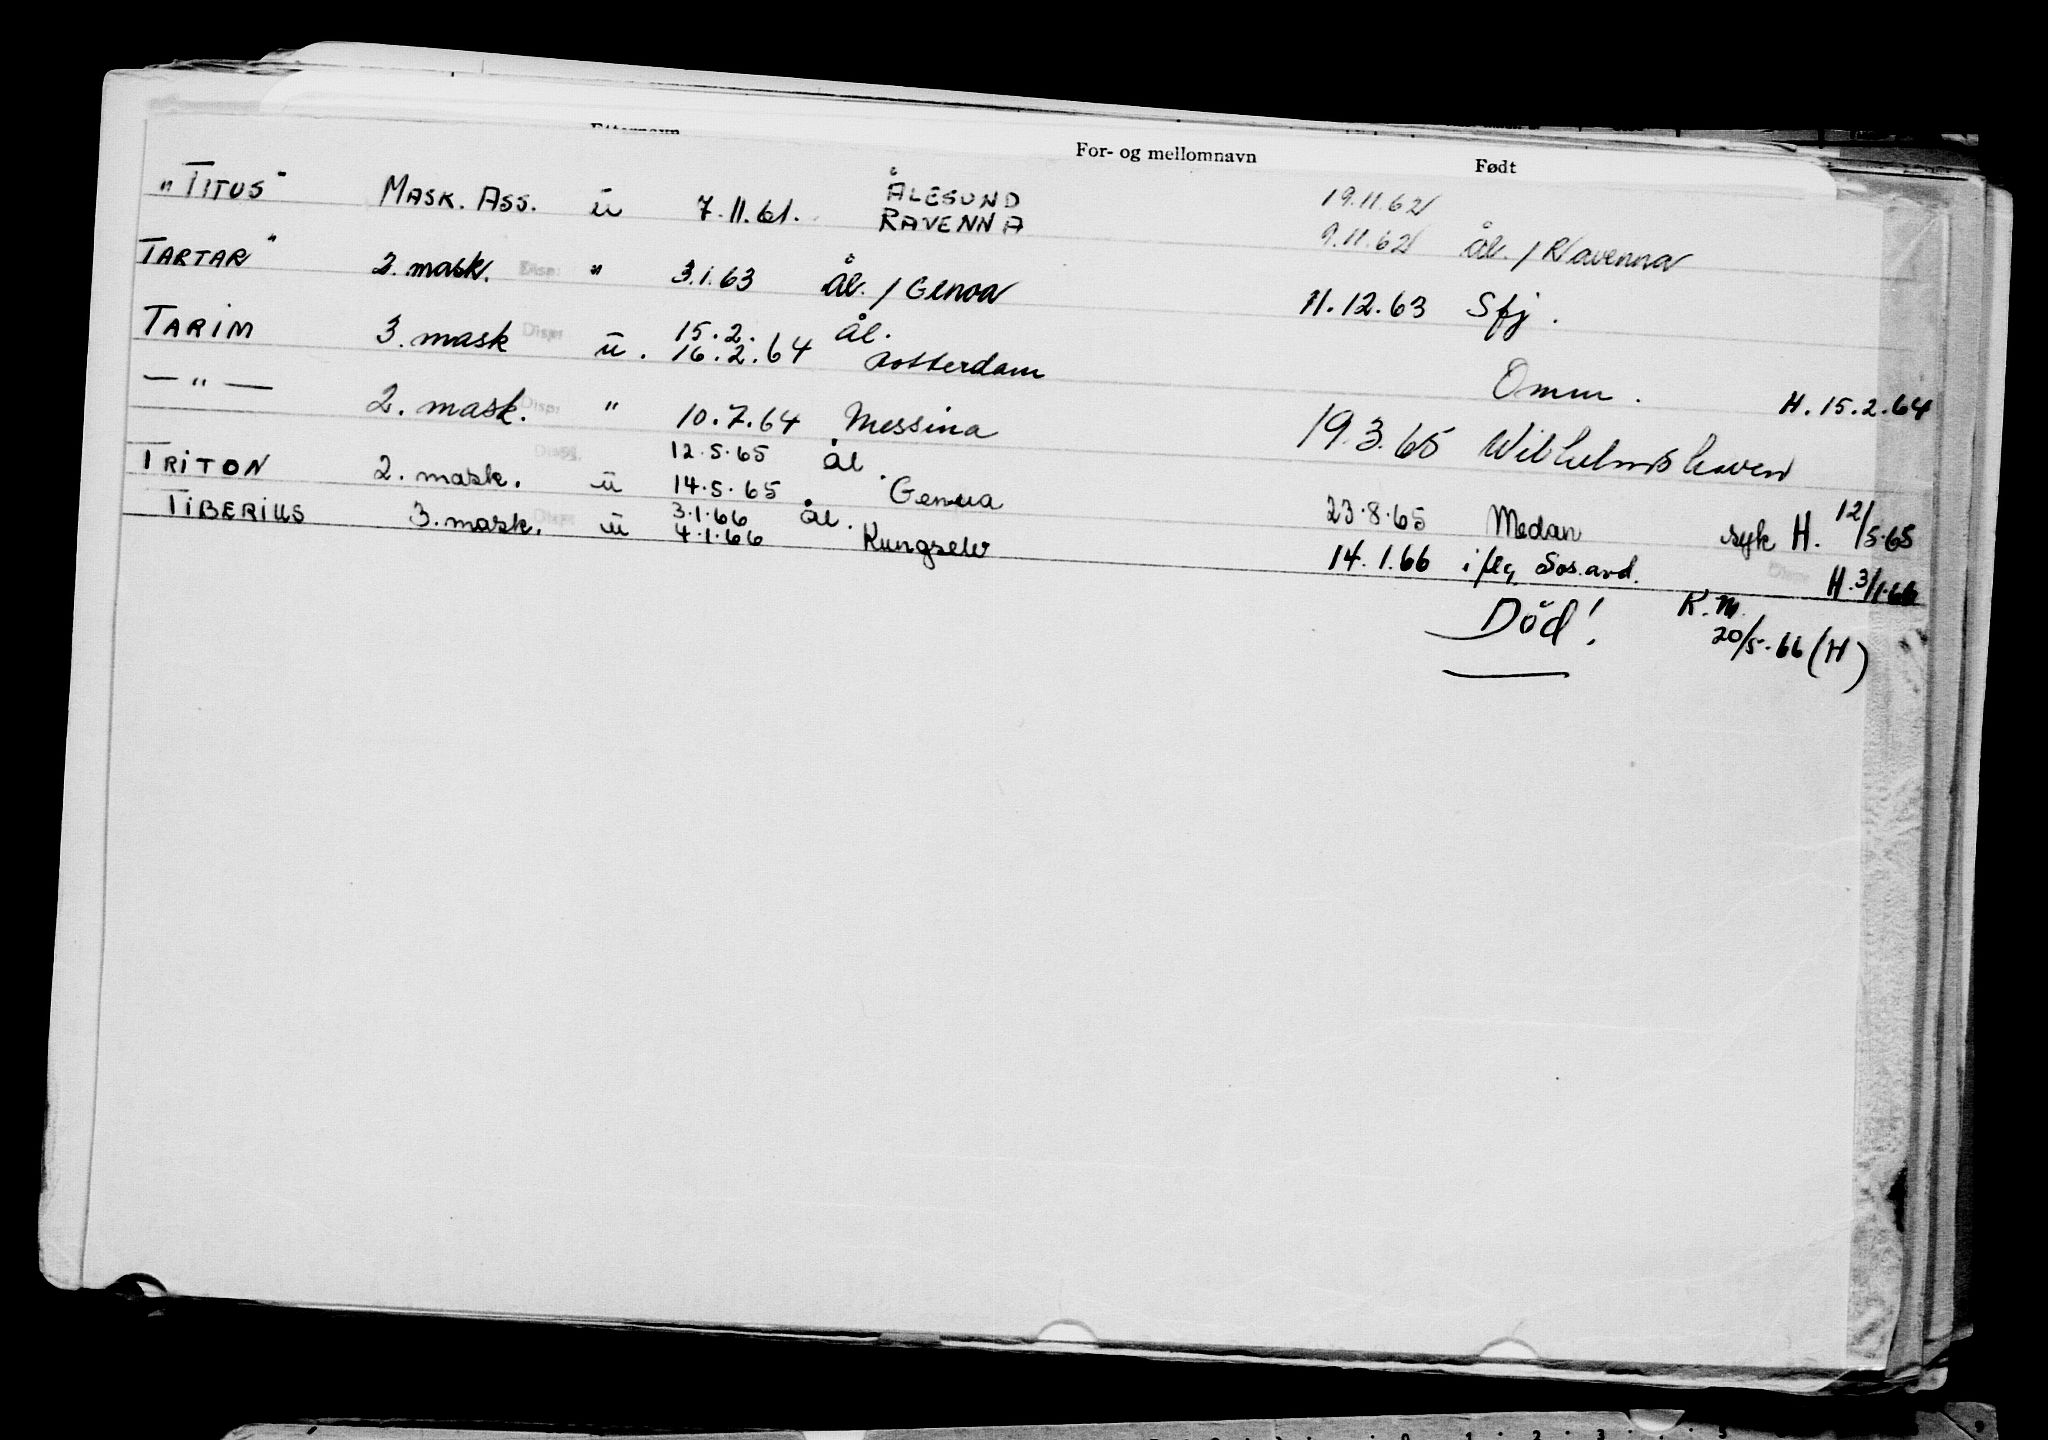 Etternavn For- og mellomnavn Født
"TITUS" MASK. ASS. ū 7.11.61. ÅLESUND 19.11.62
RAVENNA 9.11.62 Ål. / Ravenna
TARTAR" 2. mask. Disp. " 3.1.63 Ål. / Genoa 11.12.63 Sfj.
TARIM 3. mask Disp. ū. 15.2. Ål.
16.2.64 Rotterdam Omm. H. 15.2.64
— " — 2. mask. Disp. " 10.7.64 Messina 19.3.65 Wilhelmshaven
12.5.65 Ål
TRITON 2. mask. ū 14.5.65 Genua 23.8.65 Medan syk H. 12/5.65
3.1.66 Ål.
TIBERIUS 3. mask. Disp. ū 4.1.66 Kungselv 14.1.66 i flg. Sos.avd. Disp. H. 3/1.66
Död! K.M.
20/5.66 (H)